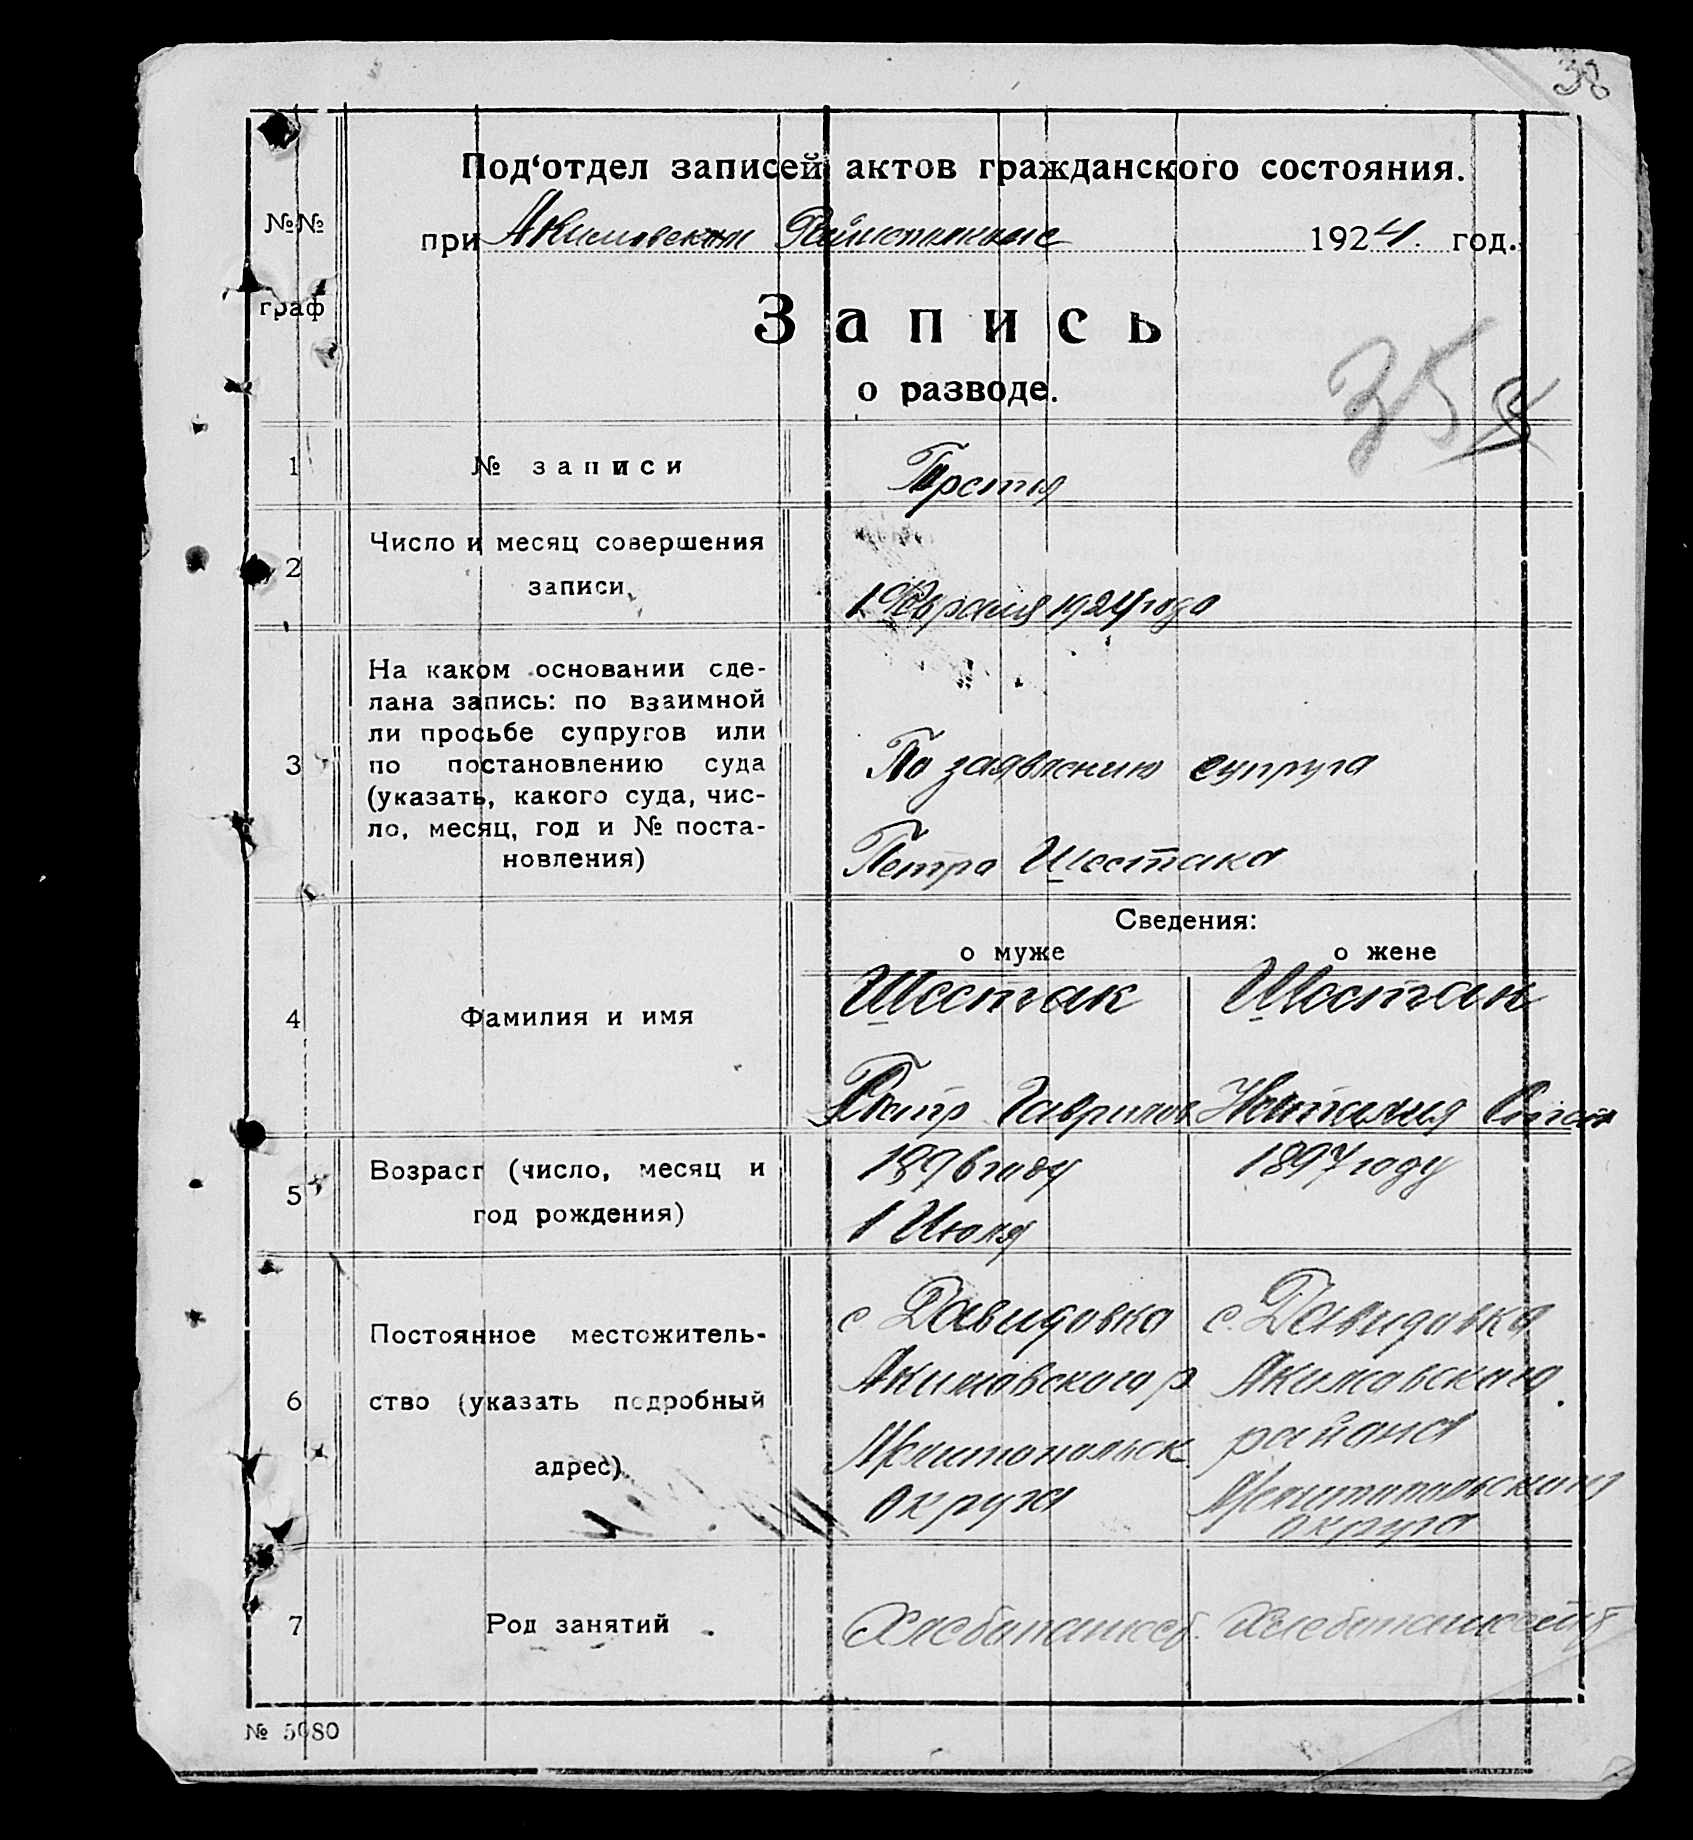 38
Под‘отдел записей актов гражданского состояния.
№№
при Акимовском Райисполкоме 1924 год.
граф
Запись
о разводе.
35
1 № записи Третья
2 Число и месяц совершения
записи
1 Февраля 1924 года
На каком основании сде-
лана запись: по взаимной
ли просьбе супругов или
3 по постановлению суда По заявлению супруга
(указать, какого суда, чис-
ло, месяц, год и № поста-
новления) Петра Шестака
Сведения:
о муже о жене
Шестак Шестак
4 Фамилия и имя
Петр Гаврилов Наталия
Возраст (число, месяц и 1896 году 1897 году
5
год рождения) 1 Июля
с Давидовка с. Давидовка
Постоянное местожитель-
Акимовского р Акимовского
6 ство (указать подробный
Мелитопольск района
адрес)
округа Мелитопольского
округа
7 Род занятий Хлебопашест. Хлебопашест
№ 5080